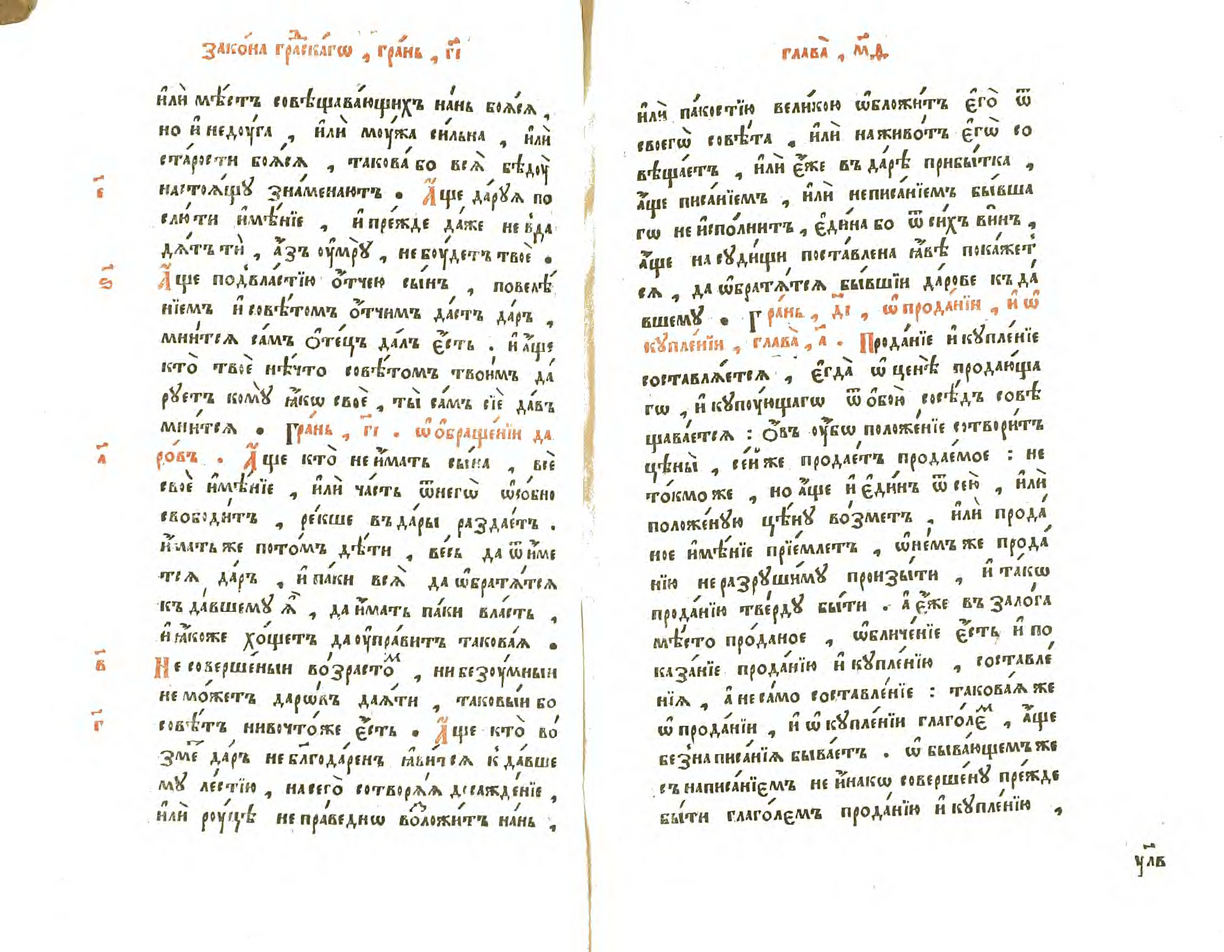 Зако́на гра́дскагѡ , гра́нь , г҃і
и҆лѝ мѣ́стъ совѣщава́ющихъ на́нь боѧ́сѧ ,
но и҆ недоу́га , и҆лѝ моу́жа си́льна , и҆лѝ
ста́рости боѧ́сѧ , такова́ бо всѧ̀ бѣдоу̀
настоѧ́щꙋ зна́менаютъ . А҆́ще да́рꙋѧ по
є҃
слю́ ти и҆мѣ́нїе , и҆ пре́жде да́же не вда
дѧ́тъ ти , а҆́зъ ᲂу҆мрꙋ̀ , не бᲂу́детъ твоѐ .
ѕ҃
А҆́ще под̾вла́стїю ѻ҆́тчею сы́нъ , повелѣ́
нїемъ и҆ совѣ́томъ ѻ҆́тчимъ да́стъ да́ръ ,
мни́тсѧ са́мъ ѻ҆те́цъ да́лъ є҆́сть . и҆ а҆́ще
кто̀ твоѐ нѣ́что совѣ́томъ твои́мъ да́
рꙋетъ комꙋ̀ ꙗ҆́кѡ своѐ , ты̀ са́мъ сїѐ да́въ
мни́тсѧ . Гра́нь , г҃і . ѡ҆ ѡ҆браще́нїи да
ро́въ . А҆́ще кто̀ не и҆́мать сы́на , всѐ
а҃
своѐ и҆мѣ́нїе , и҆лѝ ча́сть ѿ негѡ̀ ѡ҆со́бно
свободи́тъ , ре́кше въ да́ры раздае́тъ .
и҆́мать же пото́мъ дѣ́ти , ве́сь да ѿи́ме
тсѧ да́ръ , и҆ па́ки всѧ̀ да ѡ҆братѧ́тсѧ
къ да́вшемꙋ ѧ҆̀ , да и҆́мать па́ки вла́сть ,
и҆ ꙗ҆́коже хо́щетъ да ᲂу҆пра́витъ такова́ѧ .
в҃
Не соверше́ныи во́зрастомъ , ни безᲂу́мныи
не мо́жетъ дарѡ́въ даѧ́ти , таковы́и бо
совѣ́тъ нивочто́же є҆́сть . А҆́ще кто̀ во́
г҃
зме́ да́ръ не бл҃года́ренъ ꙗ҆ви́тсѧ к да́вше
мꙋ ле́стїю , на сего̀ сотворѧ́ѧ досажде́нїе ,
и҆лѝ рᲂу́цѣ не пра́веднѡ во́ложитъ на́нь ,
глава̀ , м҃д
и҆лѝ па́костїю вели́кою ѡ҆бложи́тъ є҆го̀ ѿ
своегѡ̀ совѣ́та , и҆лѝ на живо́тъ є҆гѡ̀ со
вѣща́етъ , и҆лѝ є҆́же въ да́рѣ прибы́тка ,
а҆́ще писа́нїемъ , и҆лѝ неписа́нїемъ бы́вша
гѡ не и҆спо́лнитъ , є҆ди́на бо ѿ си́хъ ви́нъ ,
а҆́ще на сꙋди́щи поста́влена ꙗ҆́вѣ пока́жет
сѧ , да ѡ҆братѧ́тсѧ бы́вшїи да́рове къ да́
вшемꙋ . Гра́нь , д҃і , ѡ҆ прода́нїи , и҆ ѡ҆
кꙋпле́нїи , глава̀ , а҃ . Прода́нїе и҆ кꙋпле́нїе
составлѧ́етсѧ , є҆гда̀ ѡ҆ цѣнѣ̀ продаю́ща
гѡ , и҆ кꙋпᲂу́ющагѡ ѿ ѻ҆бою̀ сосѣ́дъ совѣ
щава́етсѧ : ѻ҆́въ ᲂу҆́бѡ положе́нїе сотвори́тъ
цѣны̀ , се́й же продае́тъ продае́мое : не
то́кмо же , но а҆́ще и҆ є҆ди́нъ ѿ сею̀ , и҆лѝ
поло́женꙋю цѣ́нꙋ во́зметъ , и҆лѝ прода́
ное и҆мѣ́нїе прїе́млетъ , ѡ҆ не́мъ же прода́
нїю не разрꙋши́мꙋ произы́ти , и҆ та́кѡ
прода́нїю тве́рдꙋ бы́ти . а҆ є҆́же въ зало́га
мѣ́сто про́даное , ѡ҆бличе́нїе є҆́сть и҆ по
каза́нїе прода́нїю и҆ кꙋпле́нїю , составле́
нїѧ , а҆ не само̀ составле́нїе : такова́ѧ же
ѡ҆ прода́нїи , и҆ ѡ҆ кꙋпле́нїи глаго́лем , а҆́ще
без̾ написа́нїѧ быва́етъ . ѡ҆ быва́ющемъ же
съ написа́нїемъ не и҆́накѡ соверше́нꙋ пре́жде
бы́ти глаго́лемъ прода́нїю и҆ кꙋпле́нїю ,
ун҃лв